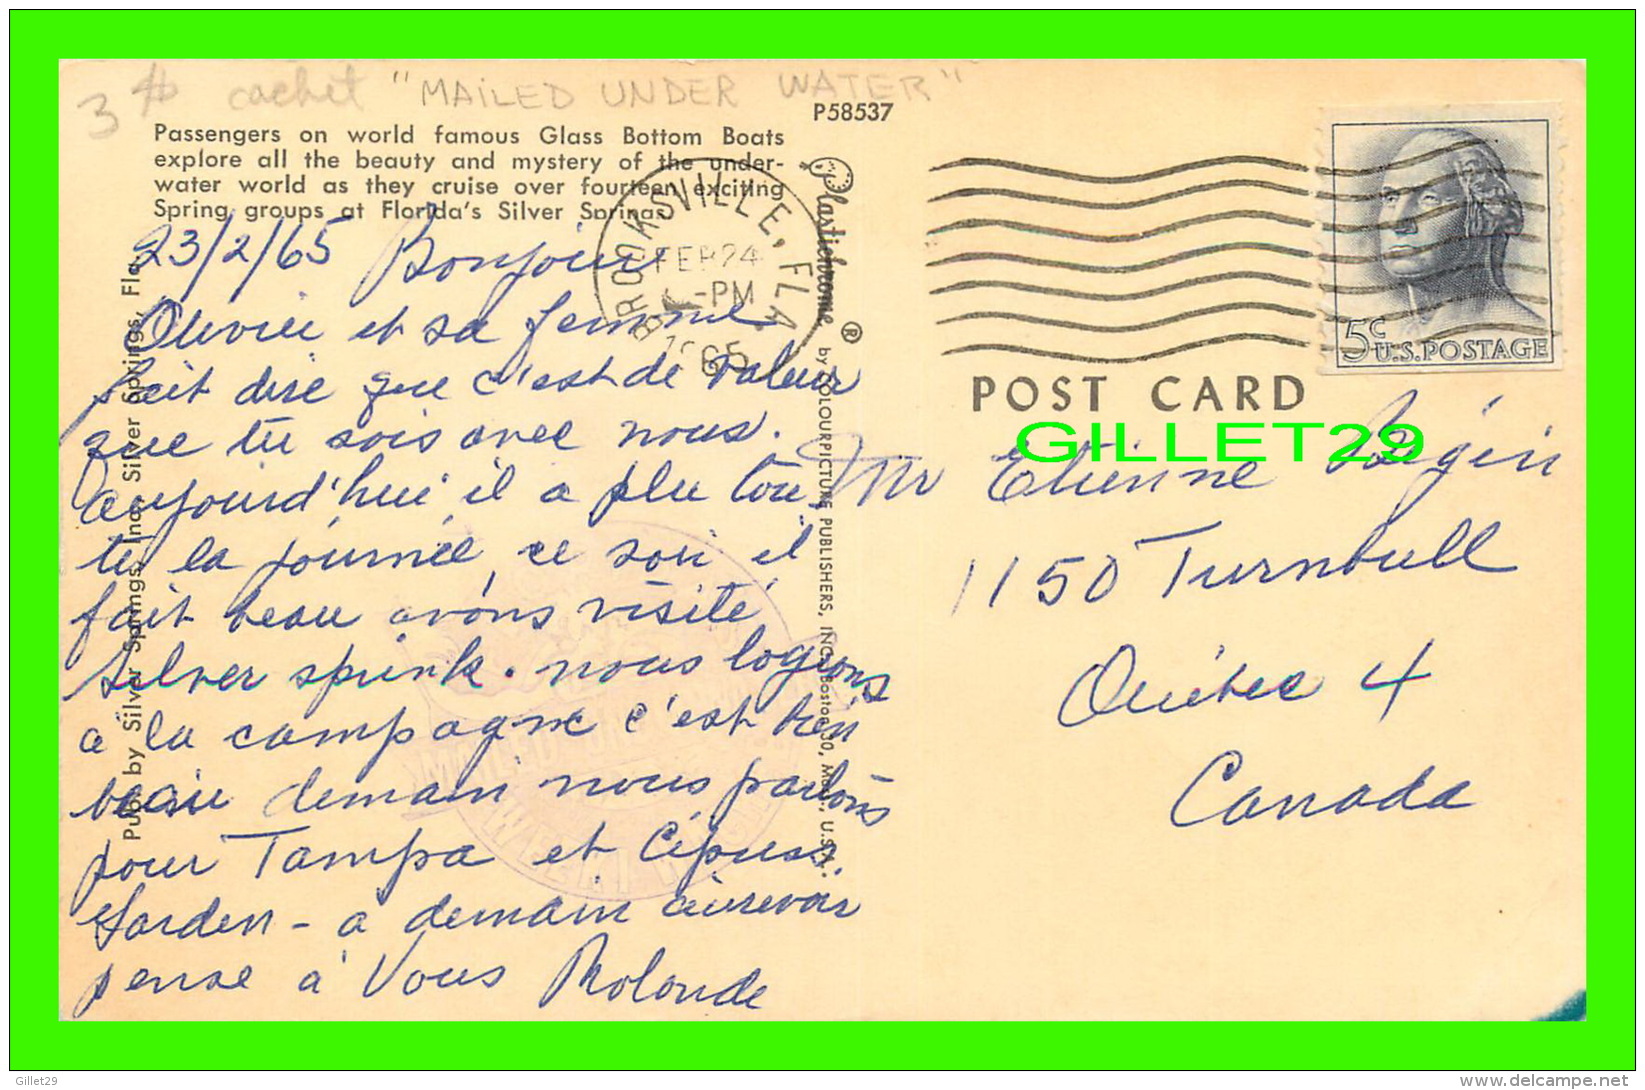 3 $ cachet "MAILED UNDER WATER"
P58537
Passengers on world famous Glass Bottom Boats
explore all the beauty and mystery of the under-
water world as they cruise over fourteen exciting
Spring groups at Florida's Silver Springs.
23/2/65 Bonjour
Olivier et sa femme
fait dire que c'est de valeur
que tu sois avec nous.
aujourd'hui il a plu tou
te la journée, ce soir il
fait beau avons visité
silver spink. nous logeons
a la campagne c'est bien
beau demain nous partons
pour Tampa et Cipuss
Garden - a demain aurevoir
pense à Vous Rolande
BROOKSVILLE, FLA.
FEB 24
-PM
1965
Plastichrome ® by COLOURPICTURE PUBLISHERS, INC., Boston 30, Mass., U.S.A.
Pub. by Silver Springs, Inc., Silver Springs, Fla.
MAILED UNDER WATER
WEEKI WACHEE
5c
U.S.POSTAGE
POST CARD
GILLET29
Mr Etienne
1150 Turnbull
Québec 4
Canada
Gillet29
www.delcampe.net